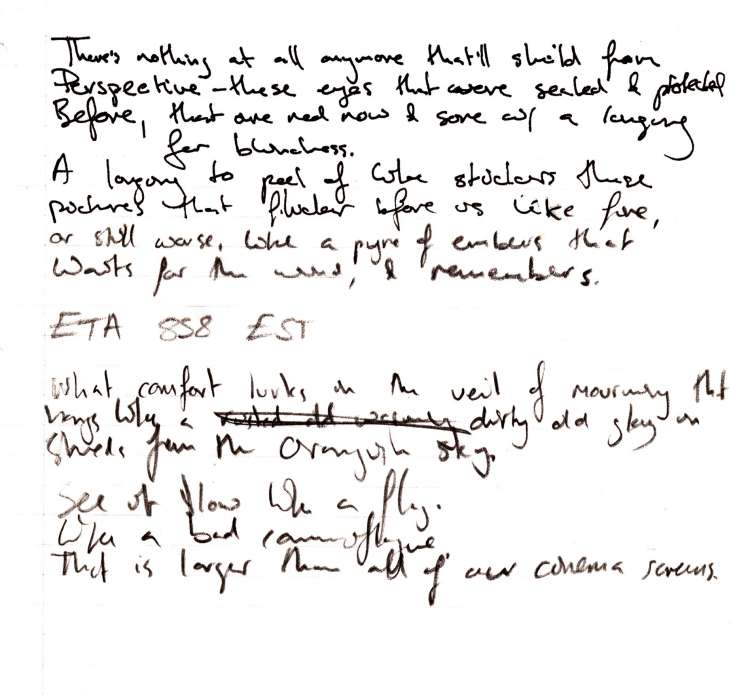 There's nothing at all anymore that'll sheild from
Perspective - these eyes that were sealed & protected
Before, that are red now & sore w/ a longing
for blindness.
A longing to peel of like stickers these
pictures that flicker before us like fire,
or still worse, like a pyre of embers that
Waits for the wind, & remembers.
ETA 858 EST
What comfort lurks in the veil of mourning that
hangs like a dirty old
shreds from the Orangish sky.
See it flow like a flag.
Like a bad camouflague
That is larger than all of our cinema screens.